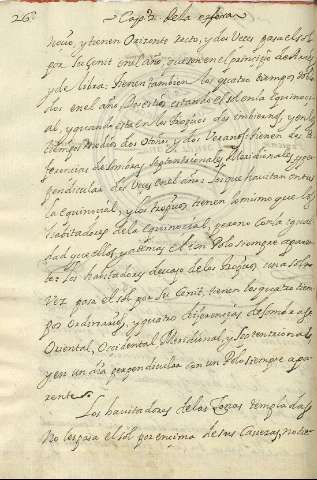 26 Cap.º 2 de la esfera
noche, y tienen Orizonte recto, y dos Veces pasa el sol
por su Cenit en el año, que son en el principio de Aries
y de libra: tienen tambien los quatro tiempos
dos en el año Dos estios estando el sol en la Equinocial
al, y quando está en los tropicos dos imbiernos, y en los
tiempos medios dos Otoños, y dos Veranos: tienen
ferencias de sombras, Septentrionales, y Meridionales, y per
pendicular dos Veces en el año: Los que havitan entre
la Equinocial, y los tropicos, tienen lo mismo que los
havitadores de la Equinocial, pero no con la igual
dad que ellos, y ademas el un Polo siempre aparen
te: los havitadores devajo de los tropicos una sola
Vez pasa el sol por su Cenit, tienen los quatro tiem
pos Ordinarios, y quatro diferencias de sombra
Oriental, Occidental, Meridional, y Septentrional
y en un dia perpendicular con un Polo siempre apa
rente.
Los havitadores de las Zonas templadas
No les pasa el sol por encima de sus Cavezas,